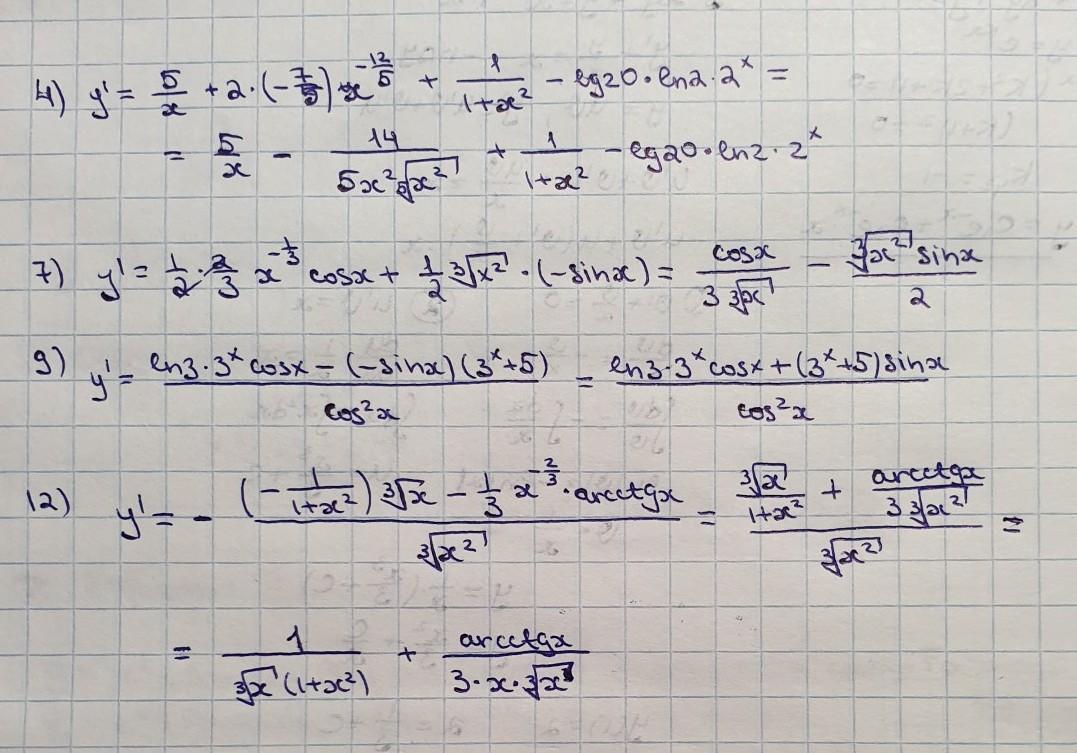 4) y' = 5/x + 2·(-7/5) x^(-12/5) + 1/(1+x²) - lg20·ln2·2^x =
= 5/x - 14/(5x² ⁵√x²) + 1/(1+x²) - lg20·ln2·2^x
7) y' = 1/2 · 2/3 x^(-1/3) cosx + 1/2 ³√x² ·(-sinx) = cosx/(3 ³√x) - ³√x² sinx/2
9) y' = (ln3·3^x cosx - (-sinx)(3^x+5))/cos²x = (ln3·3^x cosx + (3^x+5)sinx)/cos²x
12) y' = - ((-1/(1+x²)) ³√x - 1/3 x^(-2/3)·arcctgx)/³√x² = (³√x/(1+x²) + arcctgx/(3 ³√x²))/³√x² =
= 1/(³√x (1+x²)) + arcctgx/(3·x·³√x)